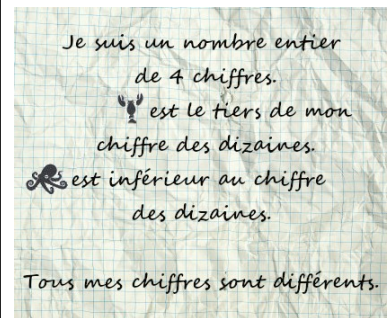 Je suis un nombre entier
de 4 chiffres.
est le tiers de mon
chiffre des dizaines.
est inférieur au chiffre
des dizaines.
Tous mes chiffres sont différents.